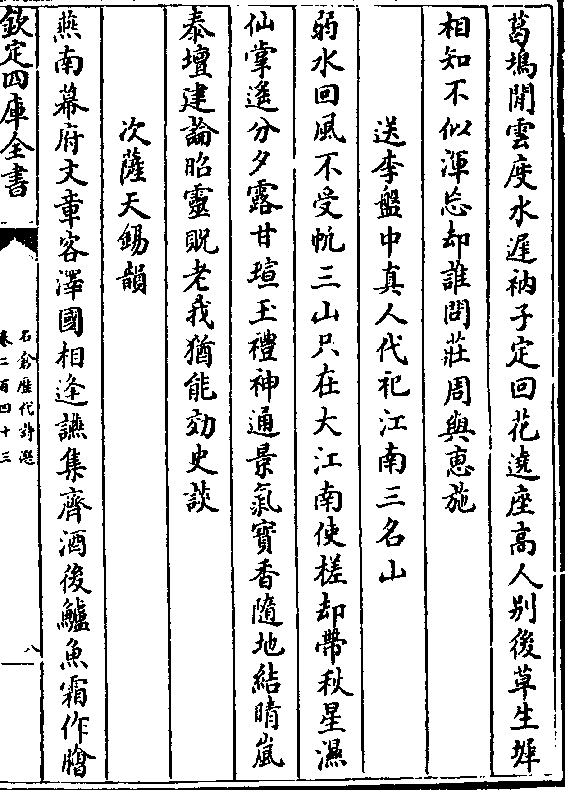 葛塢閒雲度水遲衲子定回花遶座高人别後草生墀
相知不似渾忘却誰問莊周與惠施
送李盤中真人代祀江南三名山
弱水回風不受帆三山只在大江南使槎却帶秋星濕
仙掌遙分夕露甘瑄玉禮神通景氣寶香隨地結晴嵐
泰壇建論昭靈貺老我猶能効史談
次薩天錫韻
燕南幕府文章客澤國相逢讌集齊酒後鱸魚霜作膾
欽定四庫全書
石倉歷代詩選
卷二百四十三
八